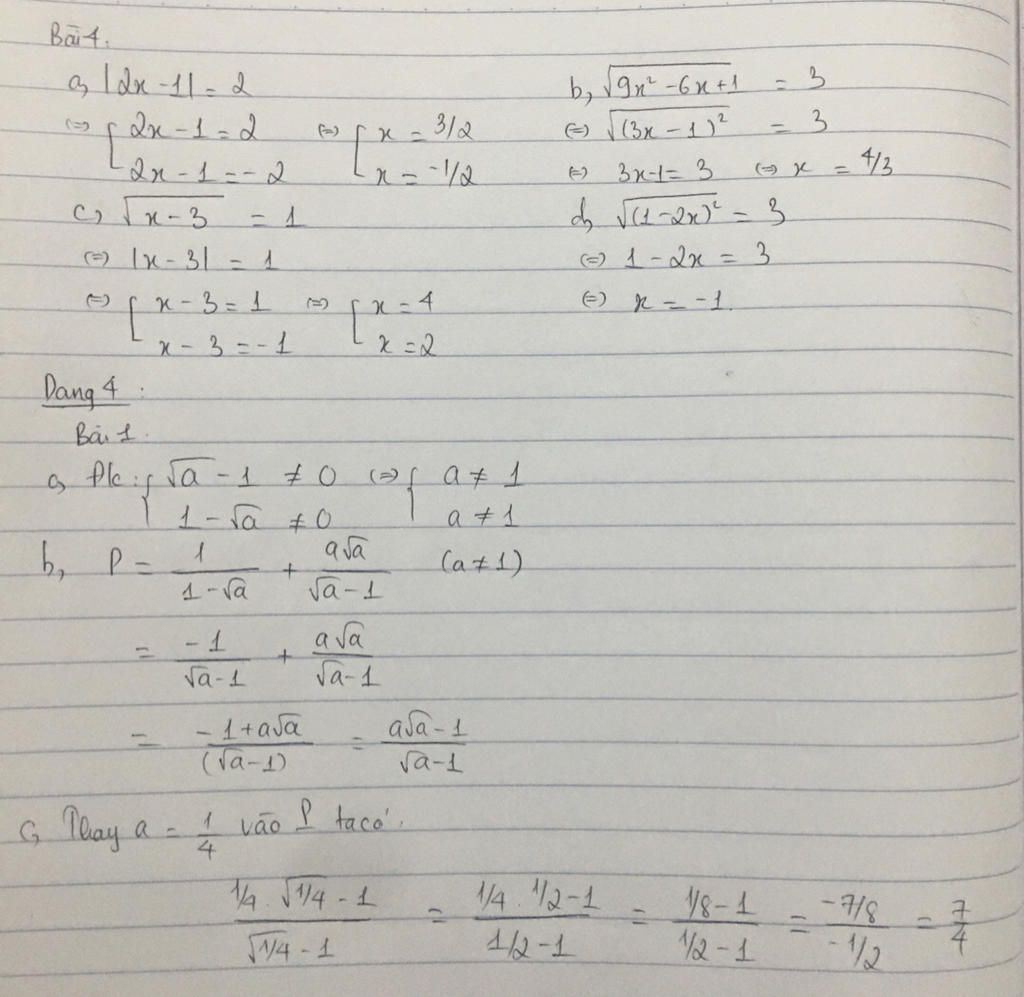 Bài 4.
a, |2x - 1| = 2
⇔ [ 2x - 1 = 2 ⇔ [ x = 3/2
2x - 1 = - 2 x = -1/2
b, √(9x² - 6x + 1) = 3
⇔ √((3x - 1)²) = 3
⇔ 3x - 1 = 3 ⇔ x = 4/3
c, √(x - 3) = 1
⇔ |x - 3| = 1
⇔ [ x - 3 = 1 ⇔ [ x = 4
x - 3 = -1 x = 2
d, √((1 - 2x)²) = 3
⇔ 1 - 2x = 3
⇔ x = -1.
Dạng 4 :
Bài 1.
a, Đk : { √a - 1 ≠ 0 ⇔ { a ≠ 1
1 - √a ≠ 0 a ≠ 1
b, P = 1/(1 - √a) + a√a/(√a - 1) (a ≠ 1)
= -1/(√a - 1) + a√a/(√a - 1)
= (-1 + a√a)/(√a - 1) = (a√a - 1)/(√a - 1)
c, Thay a = 1/4 vào P ta có.
(1/4 . √(1/4) - 1)/(√(1/4) - 1) = (1/4 . 1/2 - 1)/(1/2 - 1) = (1/8 - 1)/(1/2 - 1) = (-7/8)/(-1/2) = 7/4